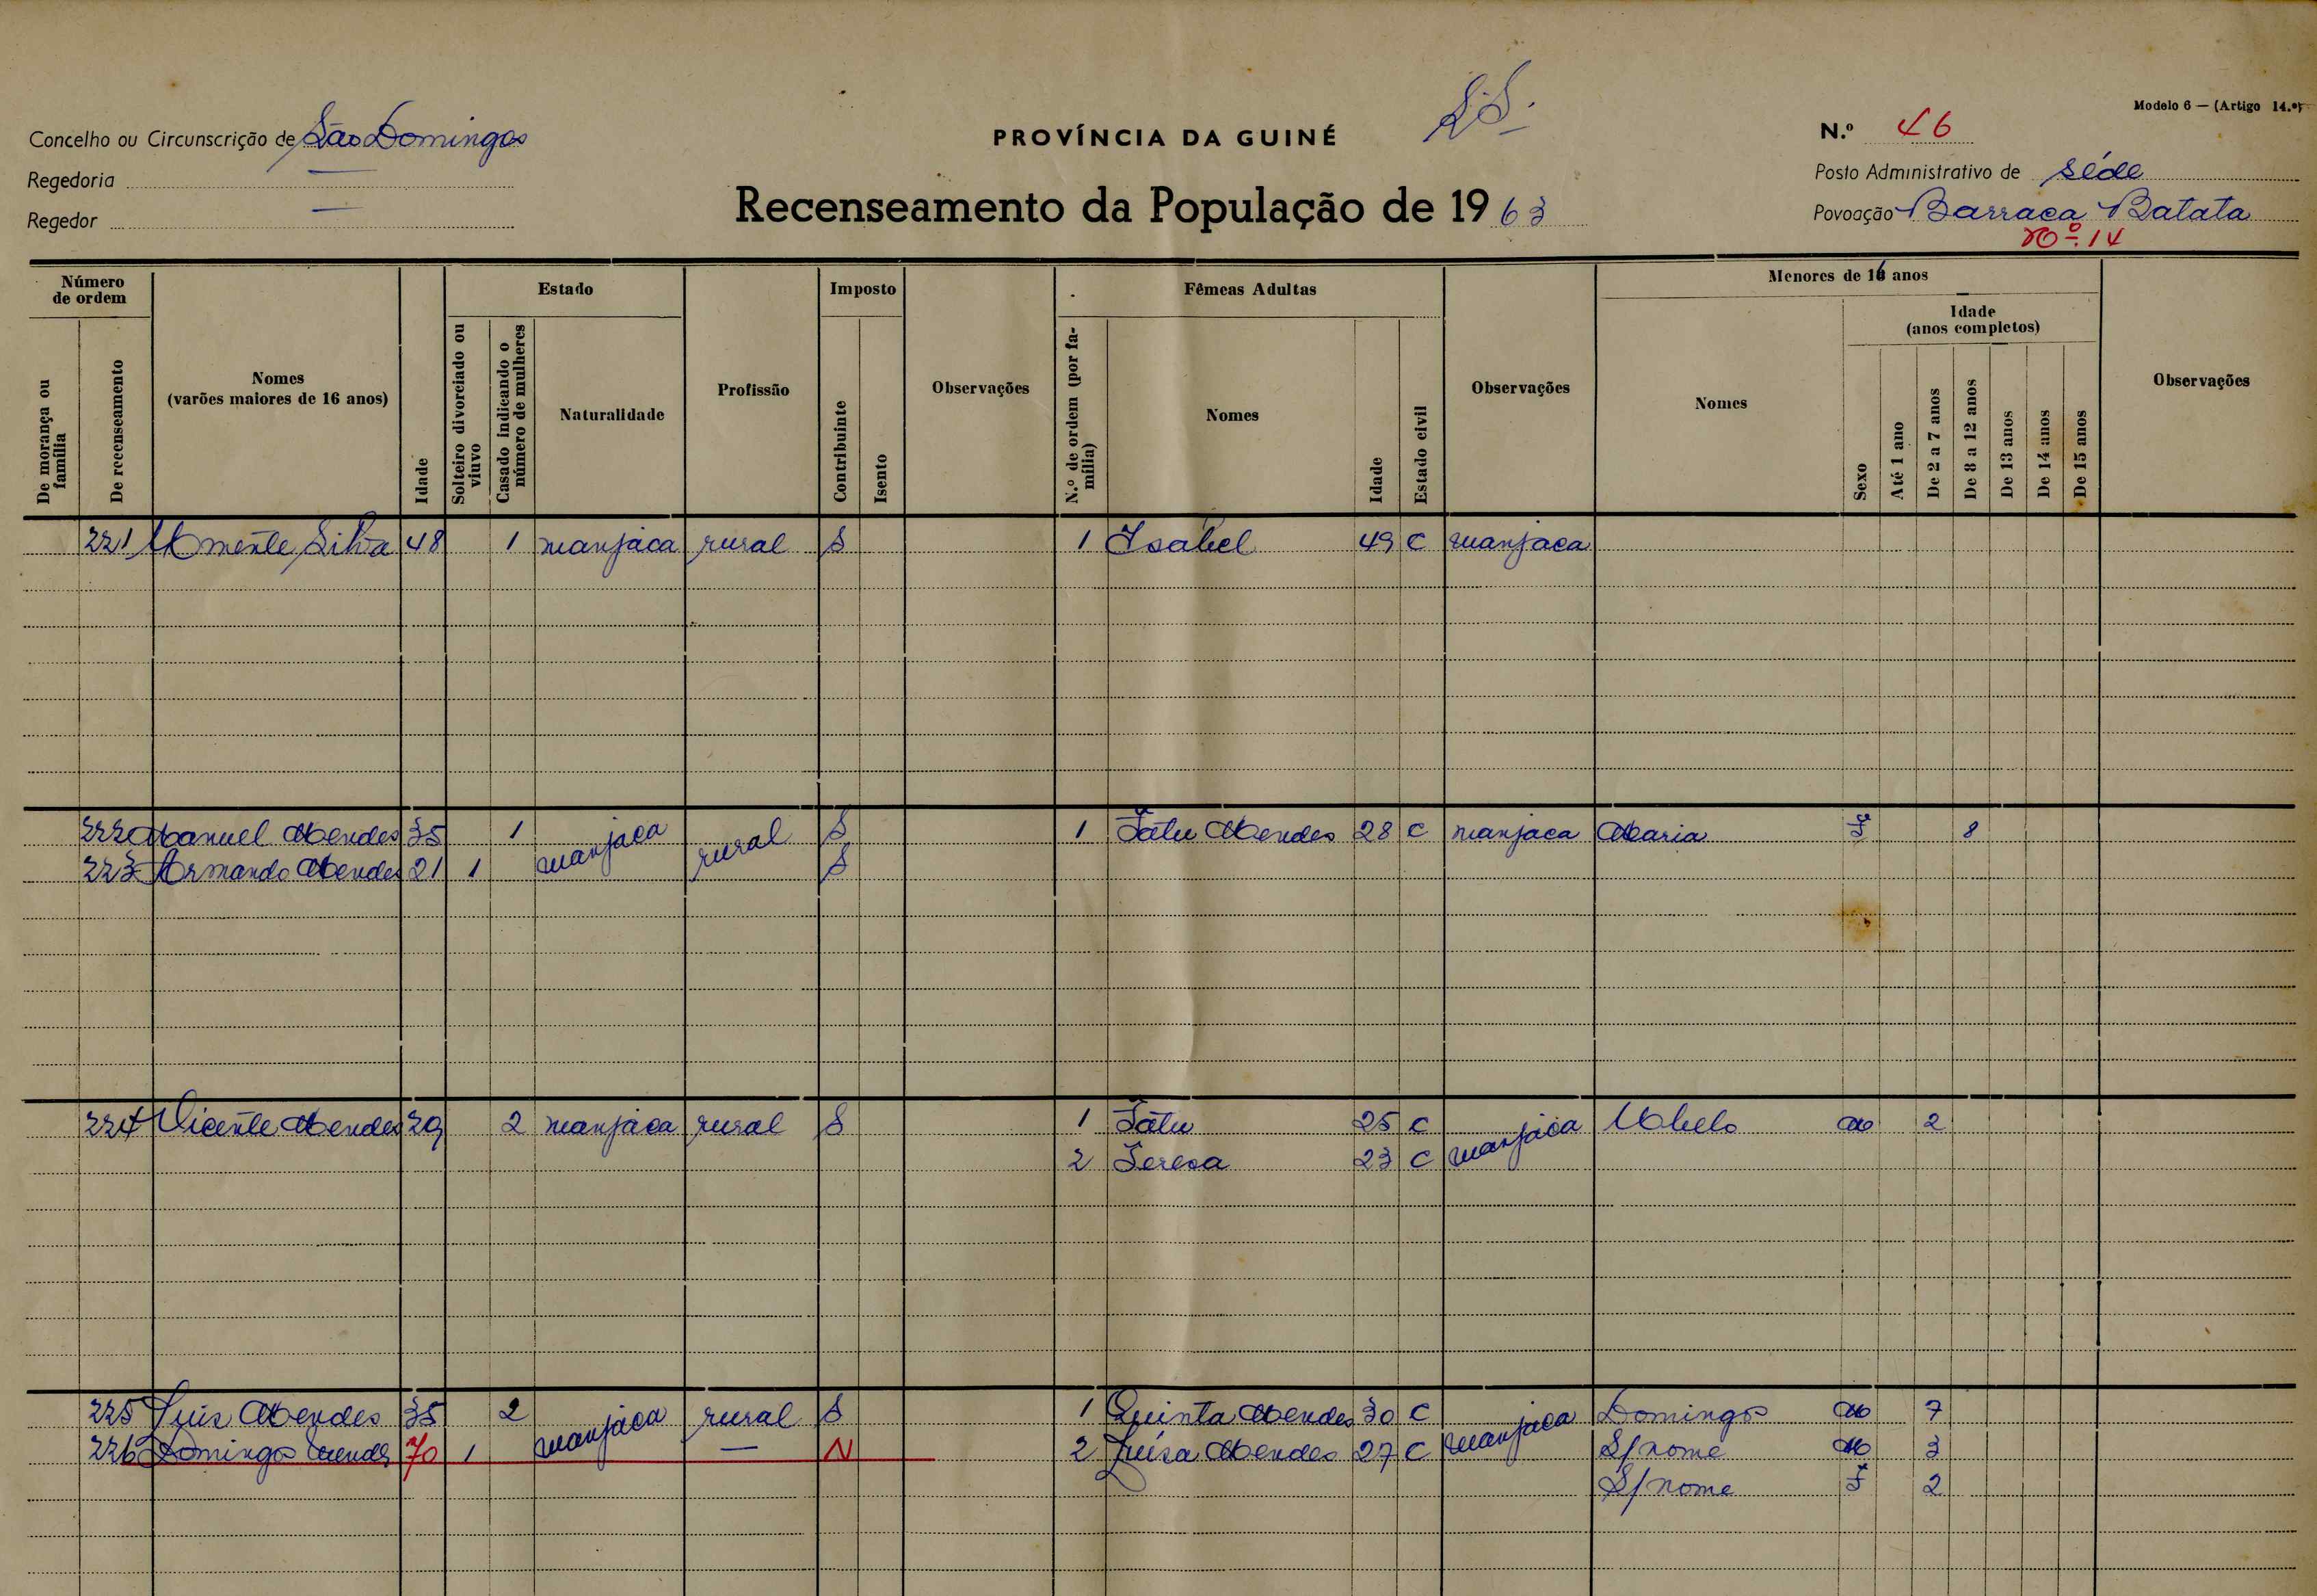 Modelo 6 — (Artigo 14.º)
Concelho ou Circunscrição de São Domingos
PROVÍNCIA DA GUINÉ
N.º 46
Regedoria —
Posto Administrativo de Séde
Regedor —
Recenseamento da População de 1963
Povoação Barraca Batata
Nº 14
Número de ordem
De morança ou família
De recenseamento
Nomes
(varões maiores de 16 anos)
Idade
Estado
Solteiro divorciado ou viuvo
Casado indicando o número de mulheres
Naturalidade
Profissão
Imposto
Contribuinte
Isento
Observações
Fêmeas Adultas
N.º de ordem (por família)
Nomes
Idade
Estado civil
Observações
Menores de 16 anos
Nomes
Idade
(anos completos)
Sexo
Até 1 ano
De 2 a 7 anos
De 8 a 12 anos
De 13 anos
De 14 anos
De 15 anos
Observações
221 Silva 48 1 manjaca rural S 1 Isabel 49 C manjaca
222 Manuel Mendes 35 1 manjaca rural S 1 Fatu Mendes 28 C manjaca Maria F 8
223 Armando Mendes 21 1 S
224 Vicente Mendes 29 2 manjaca rural S 1 Fatu 25 C manjaca M 2
2 Teresa 23 C
225 Luis Mendes 35 2 manjaca rural S 1 Quinta Mendes 30 C manjaca Domingos M 7
226 Domingos Mendes 70 1 — N 2 Luísa Mendes 27 C S/nome M 3
S/nome F 2